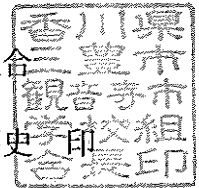 香川県
三豊市
観音寺市
学校組
合印
合
史 印